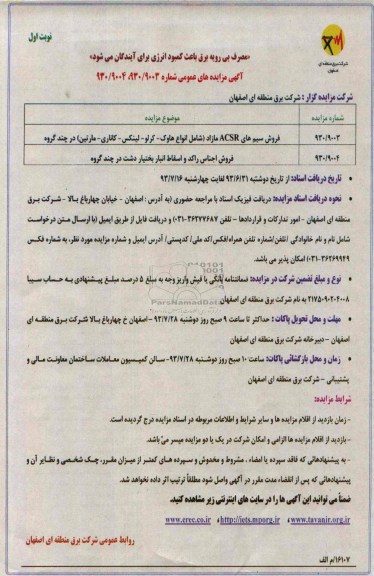 نوبت اول
شرکت برق منطقه ای
اصفهان
«مصرف بی رویه برق باعث کمبود انرژی برای آیندگان می شود»
آگهی مزایده های عمومی شماره ۹۳۰/۹۰۰۳، ۹۳۰/۹۰۰۴
شرکت مزایده گزار : شرکت برق منطقه ای اصفهان
شماره مزایده
موضوع مزایده
۹۳۰/۹۰۰۳
فروش سیم های ACSR مازاد (شامل انواع هاوک- کرلو- لینکس- کاناری- مارتین) در چند گروه
۹۳۰/۹۰۰۴
فروش اجناس راکد و اسقاط انبار بختیار دشت در چند گروه
• تاریخ دریافت اسناد: از تاریخ دوشنبه ۹۳/۶/۳۱ لغایت چهارشنبه ۹۳/۷/۱۶
• نحوه دریافت اسناد مزایده: دریافت فیزیک اسناد با مراجعه حضوری (به آدرس : اصفهان - خیابان چهارباغ بالا - شرکت برق
منطقه ای اصفهان - امور تدارکات و قراردادها - تلفن ۳۶۲۷۷۶۸۷-۰۳۱) و دریافت فایل از طریق ایمیل (با ارسال متن درخواست
شامل نام و نام خانوادگی /تلفن/شماره تلفن همراه/فکس/کد ملی/ کدپستی/ آدرس ایمیل و شماره مزایده مورد نظر، به شماره فکس
۳۶۲۶۹۹۴۹-۰۳۱) امکان پذیر می باشد.
• نوع و مبلغ تضمین شرکت در مزایده: ضمانتنامه بانکی یا فیش واریز وجه به مبلغ ۵ درصد مبلغ پیشنهادی به حساب سیبا
۲۱۷۵۰۹۰۲۰۴۰۰۸ به نام شرکت برق منطقه ای اصفهان.
• مهلت و محل تحویل پاکات : حداکثر تا ساعت ۹ صبح روز دوشنبه ۹۳/۷/۲۸ -اصفهان خ چهارباغ بالا شرکت برق منطقه ای
اصفهان - دبیرخانه شرکت برق منطقه ای اصفهان
• زمان و محل بازگشائی پاکات: ساعت ۱۰ صبح روز دوشنبه ۹۳/۷/۲۸- سالن کمیسیون معاملات ساختمان معاونت مالی و
پشتیبانی - شرکت برق منطقه ای اصفهان
شرایط مزایده:
- زمان بازدید از اقلام مزایده ها و سایر شرایط و اطلاعات مربوطه در اسناد مزایده درج گردیده است.
- بازدید از اقلام مزایده ها الزامی و امکان شرکت در یک یا دو مزایده میسر می باشد.
- به پیشنهادهائی که فاقد سپرده یا امضاء ، مشروط و مخدوش و سپرده های کمتر از میزان مقرر، چک شخصی و نظایر آن و
پیشنهادهائی که پس از انقضاء مدت مقرر در آگهی واصل شود مطلقاً ترتیب اثر داده نخواهد شد.
ضمناً می توانید این آگهی ها را در سایت های اینترنتی زیر مشاهده کنید.
www.erec.co.ir ، http://iets.mporg.ir ، www.tavanir.org.ir
روابط عمومی شرکت برق منطقه ای اصفهان
۱۶۱۰۷/م الف